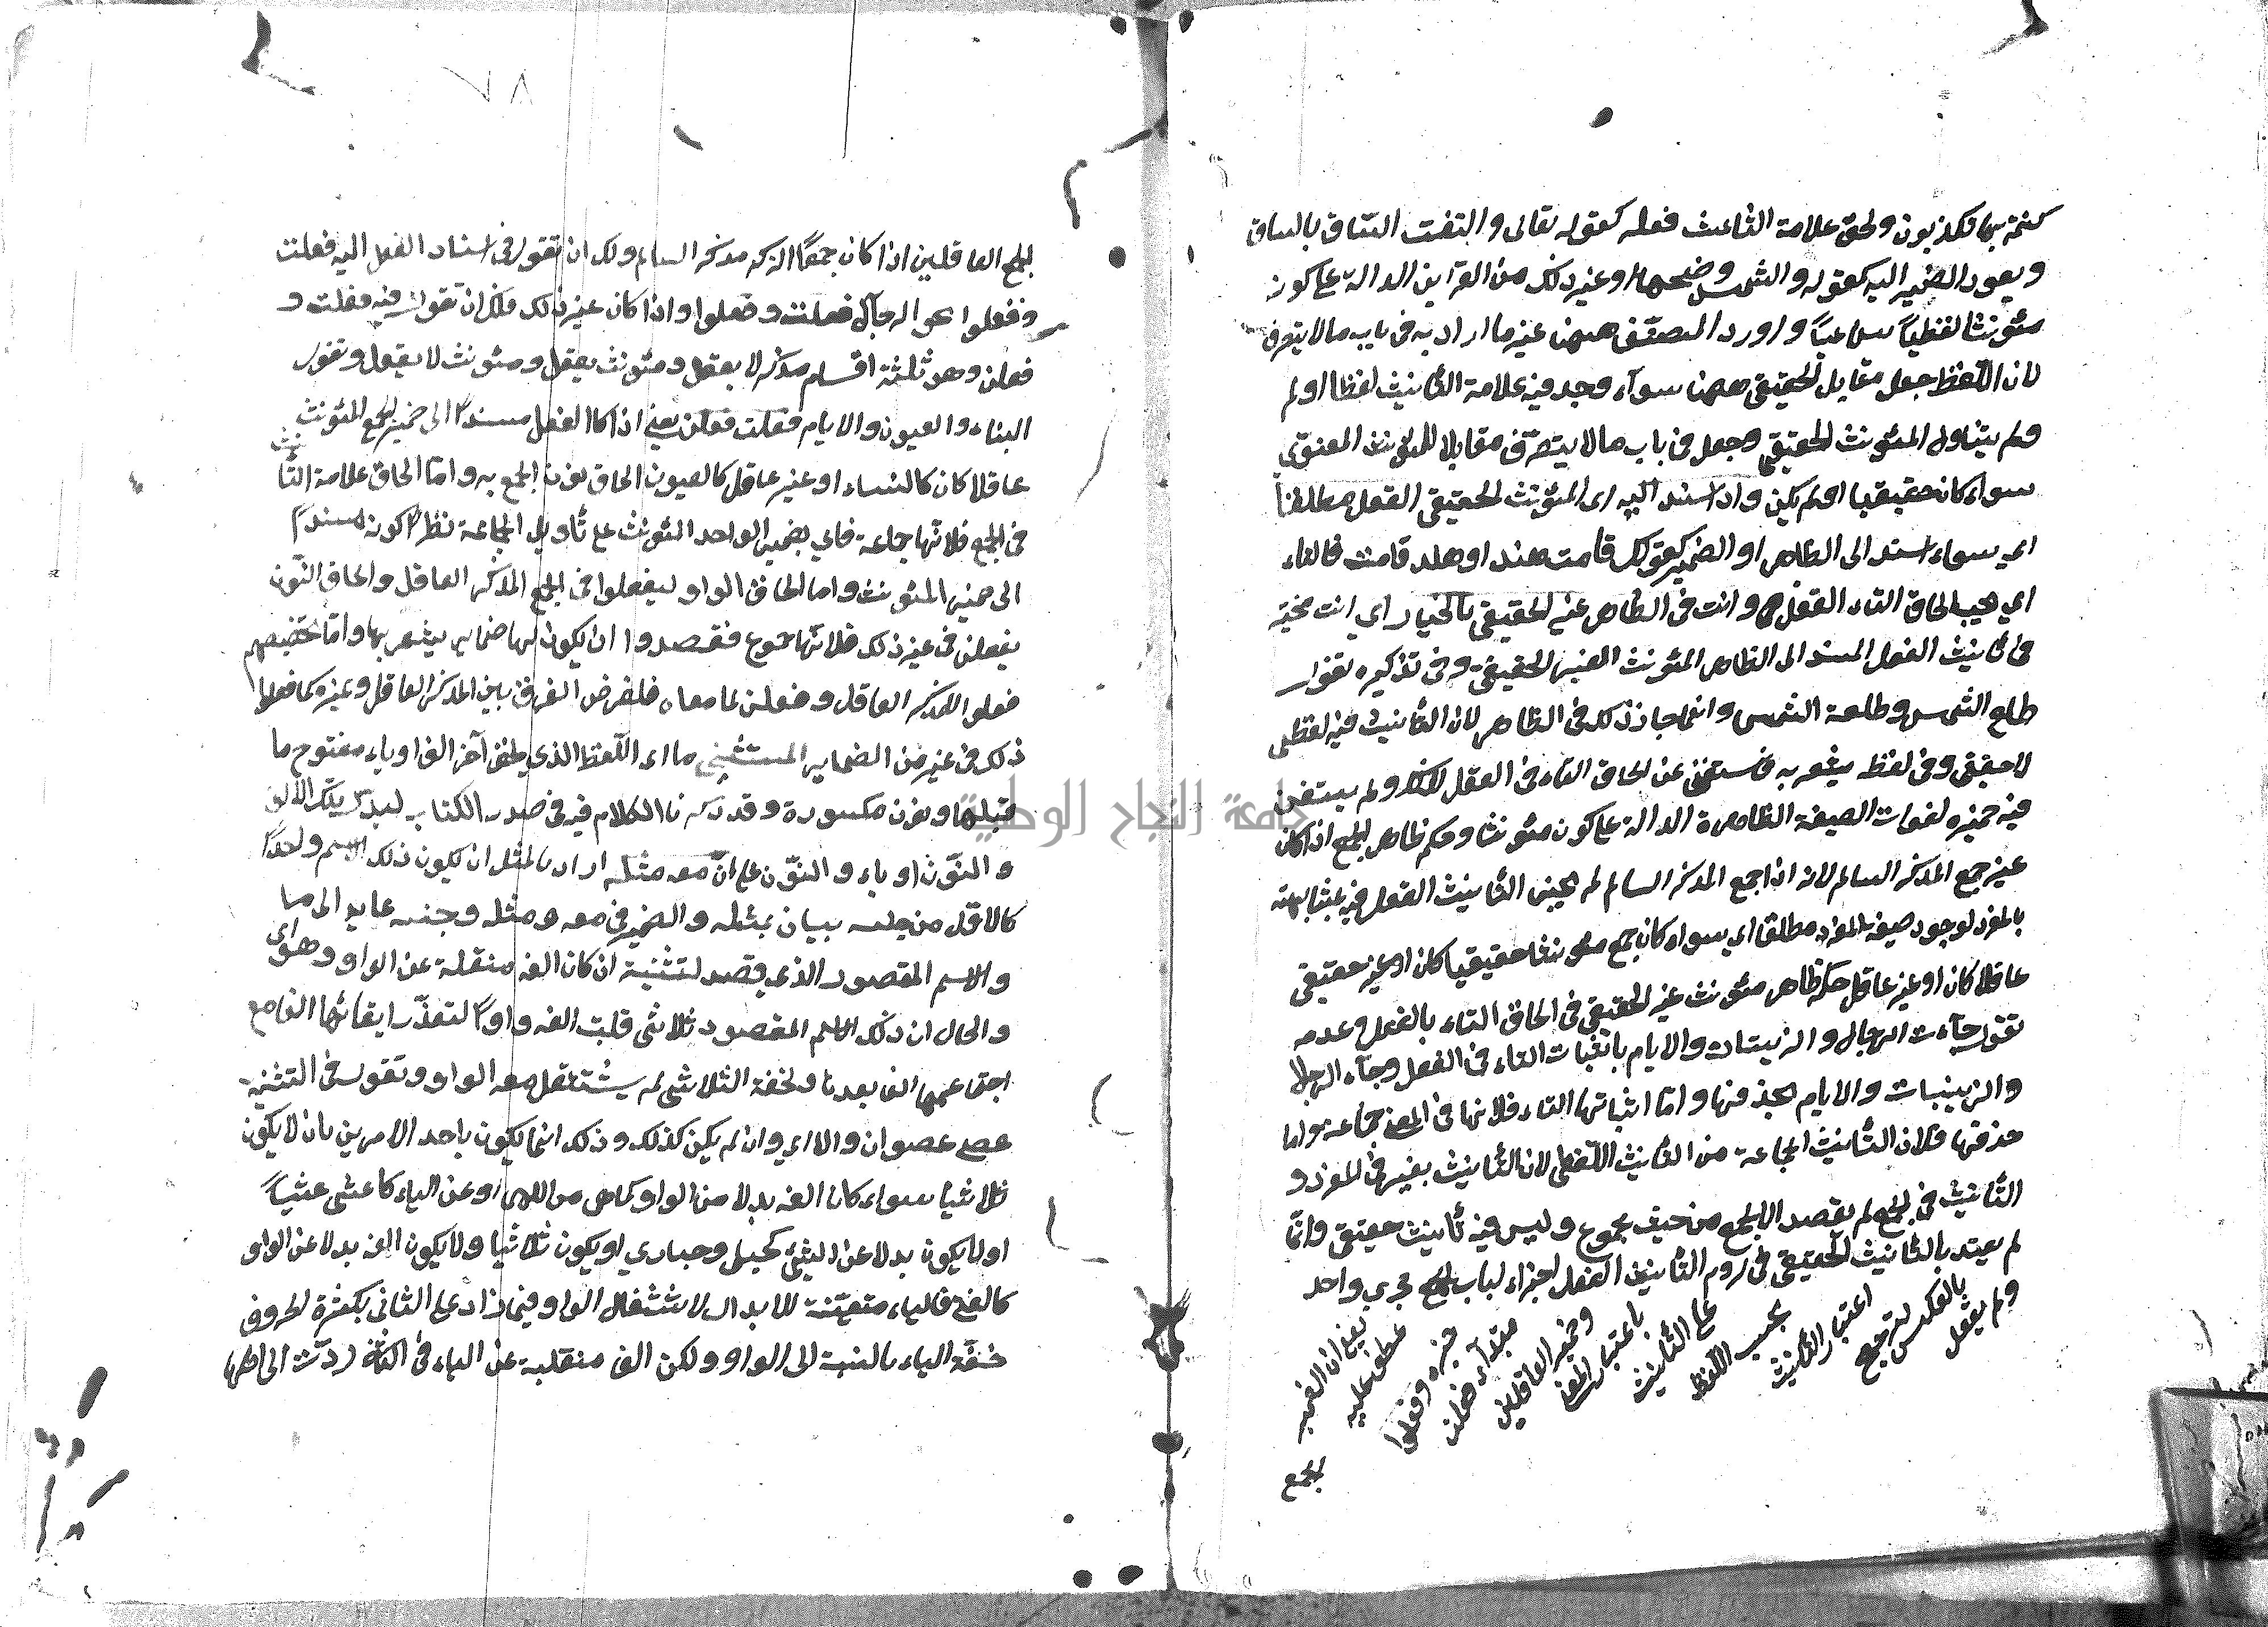 كنتم بها تكذبون ولحق علامة التأنيث فعله كقوله تعالى والتفت الساق بالساق
ويعود الضمير اليه كقوله والشمس وضحها وغير ذلك من القراين الدالة على كونه
مئونثا لفظياً سماعياً واورد المصنف ههنا غير ما اراد به فى باب ما لا ينصرف
لان اللفظ جعل مقابل الحقيقى ههنا سوآء وجد فيه علامة التأنيث لفظا اولم
ولم يتناول المئونث الحقيقى وجعل فى باب ما لا ينصرف مقابلا للمؤنث المعنوى
سواء كان حقيقيا اولم يكن واذا اسند اليه اى المئونث الحقيقى الفعل مطلقاً
اى سواء اسند الى الظاهر او الضمير كقولك قامت هند او هند قامت فالتاء
اى يجب الحاق التاء الفعل وانت فى الظاهر غير الحقيقى بالخيار اى انت مخير
فى تأنيث الفعل المسند الى الظاهر المئونث الغير الحقيقى وفى تذكيره تقول
طلع الشمس وطلعت الشمس وانما جاز ذلك فى الظاهر لان التأنيث فيه لفظى
لا حقيقى وفى لفظه يشعر به فاستغنى عن الحاق التاء فى الفعل ولم يستغن
فيه ضميره لفوات الصيغة الظاهرة الدالة على كونه مئونثا وحكم ظاهر الجمع اذا كان
غير جمع المذكر السالم لانه اذا جمع المذكر السالم لم يجئ التأنيث الفعل فيه
بالمفرد لوجود صيغة المفرد مطلقا اى سواء كان جمع مئونثا حقيقيا كان او غير حقيقى
عاقلا كان او غير عاقل حكم ظاهر مئونث غير الحقيقى فى الحاق التاء بالفعل وعدمه
تقول جآءت الرجال والزينبات والايام باثبات التاء فى الفعل وجآء الرجال
والزينبات والايام بحذفها واما اثباتها التاء فلانها فى المعنى جماعة واما
حذفها فلان التأنيث الجماعة من التأنيث اللفظى لان التأنيث بغيرها فى المفرد و
التأنيث فى الجمع لم يقصد الا الجمع من حيث مجموع وليس فيه تأنيث حقيقى وانما
لم يعتد بالتأنيث الحقيقى فى لزوم التأنيث الفعل اجزاء لباب الجمع مجرى واحد
ولم يفعل
بالعكس لترجيح
اعتبار التأنيث
بحسب اللفظ
على التأنيث
باعتبار المعنى
وضمير العاقلين
مبتدآء فعلت
خبره وفعلوا
عطف عليه
يعنى ان الضمير
لجمع
٧٨
لجمع العاقلين اذا كان جمعاً مذكر السالم ولك ان تقول فى اسناد الفعل اليه فعلت
وفعلوا نحو الرجال فعلت وفعلوا واذا كان غير ذلك فلك ان تقول فيه فعلت و
فعلن وهو ثلثة اقسام مذكر لا يعقل ومئونث يعقل ومئونث لا يعقل وتقول
النساء والعيون والايام فعلت فعلن يعنى اذا كان الفعل مسندا الى ضمير الجمع المئونث
عاقلا كان كالنساء او غير عاقل كالعيون الحاق نون الجمع به واما الحاق علامة التأنيث
فى الجمع فلانها جماعة فاى بضمير الواحد المئونث على تأويل الجماعة نظرا كونه مسندا
الى ضمير المئونث واما الحاق الواو ليفعلوا فى الجمع المذكر العاقل والحاق النون
يفعلن فى غير ذلك فلانها جموع فقصدوا ان يكون لها ضماير يشعر بها واما تخصيصهم
فعلوا للمذكر العاقل وفعلن لما معاه فلغرض الفرق بين المذكر العاقل وغيره كما فعلوا
ذلك فى غير من الضماير المستثنى ما اى اللفظ الذى يلحق آخر الف او ياء مفتوح ما
قبلها ونون مكسورة وقد ذكرنا الكلام فيه فى صدر الكتاب ليدل بتلك الالف
والنون او ياء والنون على ان معه مثله اراد بالمثل ان يكون ذلك الاسم واحداً
كالاقل من جنسه ببيان بمثله والضمير فى معه ومثله وجنسه عايد الى ما
والاسم المقصور الذى قصد لتثنية ان كان الفه منقلبة عن الواو وهو اى
والحال ان ذلك الاسم المقصور ثلاثى قلبت الفه واوا لتعذر ابقائها الفا مع
اجتماعهما الف بعدها ولخفة الثلاثى لم يستثقل معه الواو وتقول فى التثنية
عصى عصوان والا اى وان لم يكن كذلك وذلك انما يكون باحد الامرين بان لا يكون
ثلاثيا سواء كان الفه بدلا من الواو كما هى من اللهى او عن الياء كاعشى عشياً
او لا يكون بدلا عن الشئ كحبلى وحبارى او يكون ثلاثيا ولا يكون الف بدلا عن الواو
كالفتى فالياء متعينة للابدال لاستثقال الواو فيما زاد على الثانى بكثرة الحروف
خفة الياء بالنسبة الى الواو ولكن الف منقلبة عن الياء فى الثالثة ردت الى اصلها
جامعة النجاح الوطنية